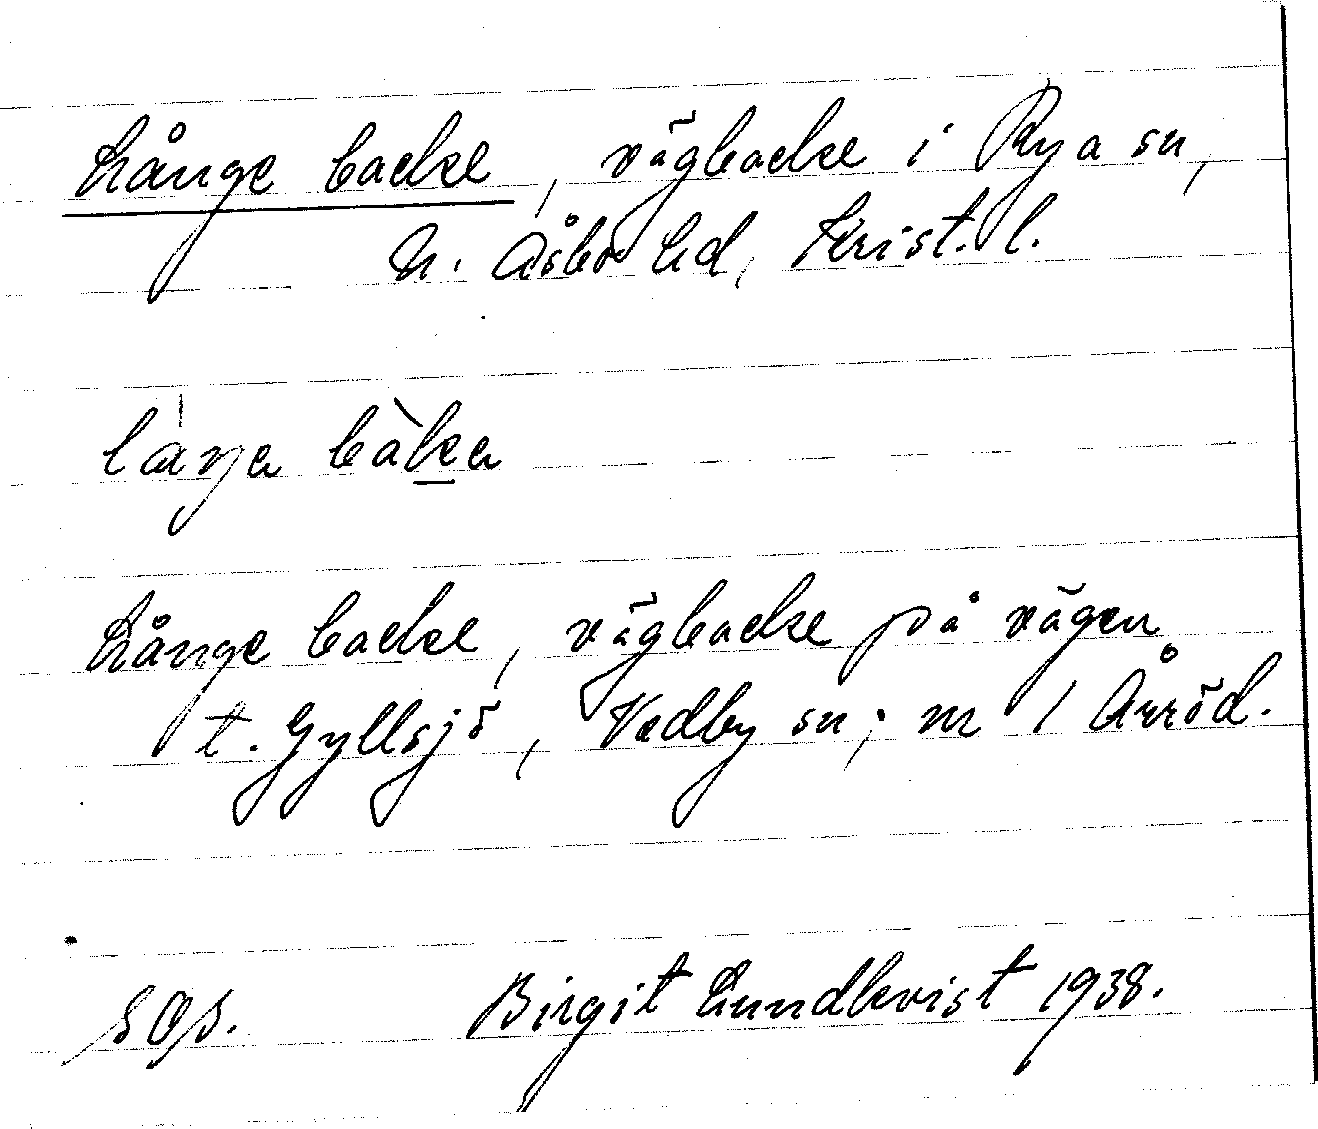 Långe backe, vägbacke i Rya sn,
N. Åsbo hd, Krist. l.
låŋa bàka
Långe backe, vägbacke på vägen
t. Gyllsjö, Vedby sn; m 1 Årröd.
Birgit Lundkvist 1938.